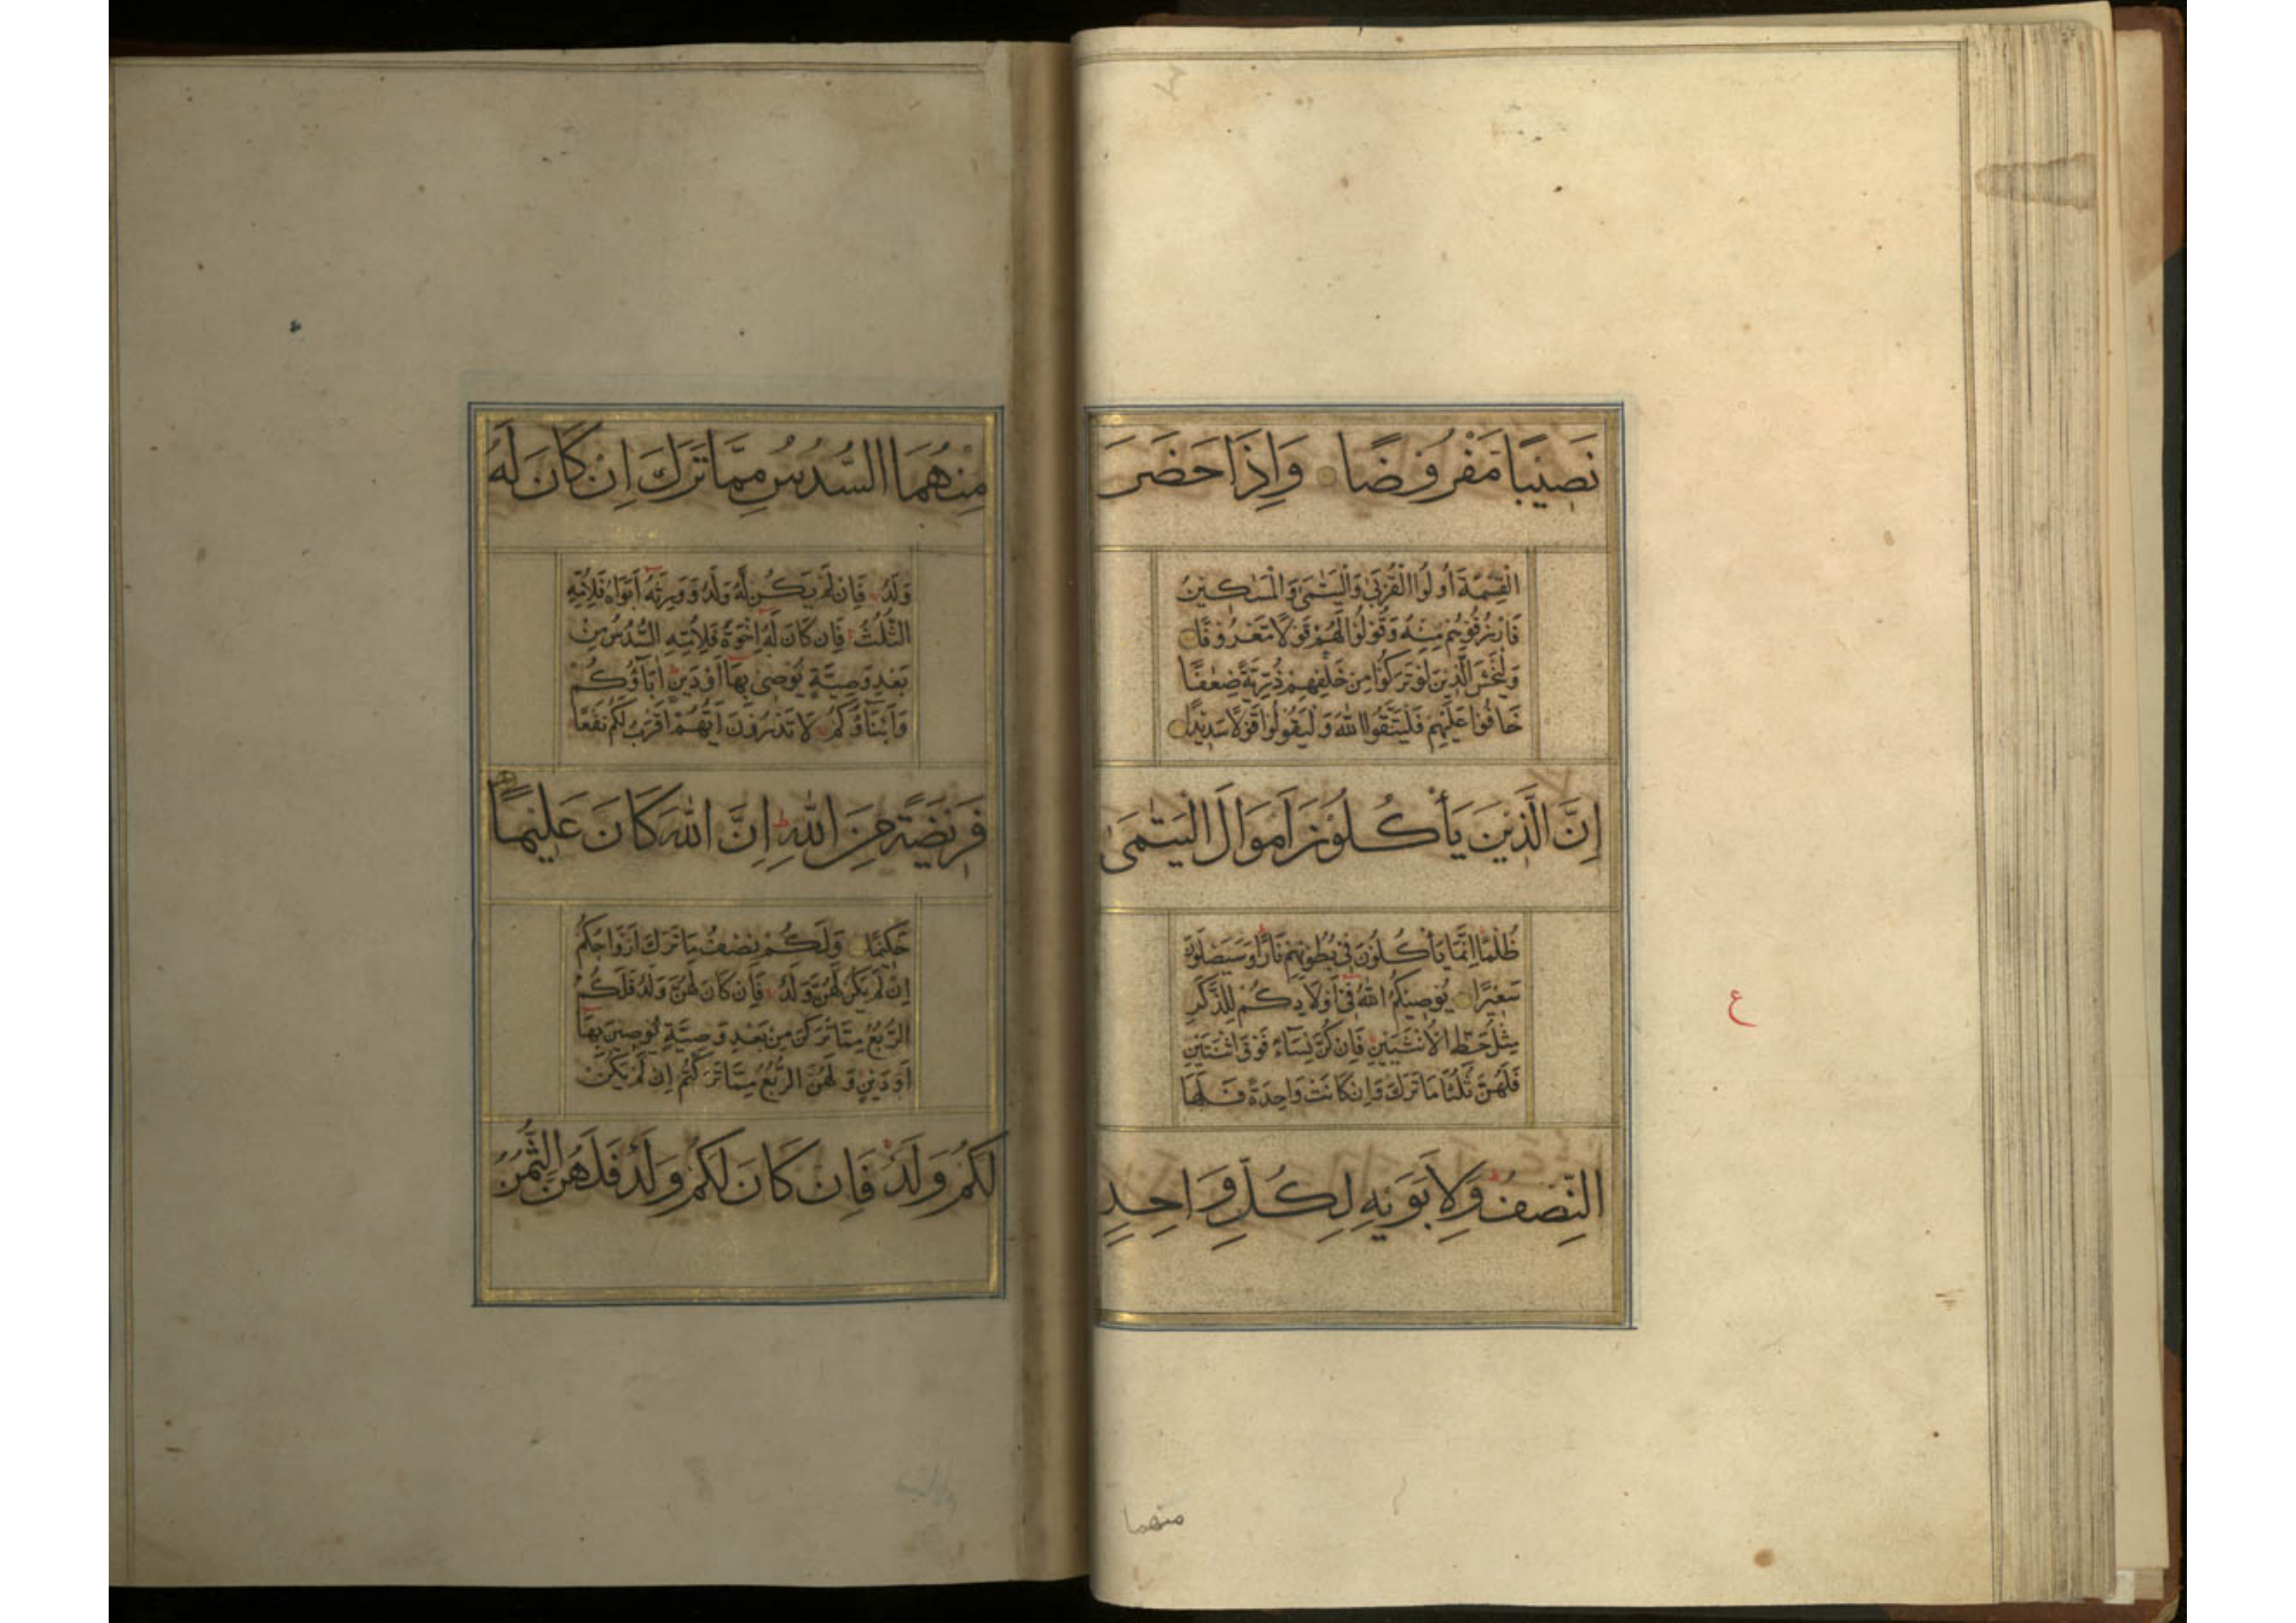 نَصِيبًا مَفْرُوضًا وَاِذَا حَضَرَ
الْقِسْمَةَ اُولُوا الْقُرْبٰى وَالْيَتٰمٰى وَالْمَسٰكِينُ
فَارْزُقُوهُمْ مِنْهُ وَقُولُوا لَهُمْ قَوْلًا مَعْرُوفًا
وَلْيَخْشَ الَّذِينَ لَوْ تَرَكُوا مِنْ خَلْفِهِمْ ذُرِّيَّةً ضِعٰفًا
خَافُوا عَلَيْهِمْ فَلْيَتَّقُوا اللّٰهَ وَلْيَقُولُوا قَوْلًا سَدِيدًا
اِنَّ الَّذِينَ يَأْكُلُونَ اَمْوَالَ الْيَتٰمٰى
ظُلْمًا اِنَّمَا يَأْكُلُونَ فِى بُطُونِهِمْ نَارًا وَسَيَصْلَوْنَ
سَعِيرًا يُوصِيكُمُ اللّٰهُ فِى اَوْلَادِكُمْ لِلذَّكَرِ
مِثْلُ حَظِّ الْاُنْثَيَيْنِ فَاِنْ كُنَّ نِسَاءً فَوْقَ اثْنَتَيْنِ
فَلَهُنَّ ثُلُثَا مَا تَرَكَ وَاِنْ كَانَتْ وَاحِدَةً فَلَهَا
النِّصْفُ وَلِاَبَوَيْهِ لِكُلِّ وَاحِدٍ
ع
منهما
مِنْهُمَا السُّدُسُ مِمَّا تَرَكَ اِنْ كَانَ لَهُ
وَلَدٌ فَاِنْ لَمْ يَكُنْ لَهُ وَلَدٌ وَوَرِثَهُ اَبَوَاهُ فَلِاُمِّهِ
الثُّلُثُ فَاِنْ كَانَ لَهُ اِخْوَةٌ فَلِاُمِّهِ السُّدُسُ مِنْ
بَعْدِ وَصِيَّةٍ يُوصِى بِهَا اَوْ دَيْنٍ اٰبَآؤُكُمْ
وَاَبْنَآؤُكُمْ لَا تَدْرُونَ اَيُّهُمْ اَقْرَبُ لَكُمْ نَفْعًا
فَرِيضَةً مِنَ اللّٰهِ اِنَّ اللّٰهَ كَانَ عَلِيمًا
حَكِيمًا وَلَكُمْ نِصْفُ مَا تَرَكَ اَزْوَاجُكُمْ
اِنْ لَمْ يَكُنْ لَهُنَّ وَلَدٌ فَاِنْ كَانَ لَهُنَّ وَلَدٌ فَلَكُمُ
الرُّبُعُ مِمَّا تَرَكْنَ مِنْ بَعْدِ وَصِيَّةٍ يُوصِينَ بِهَا
اَوْ دَيْنٍ وَلَهُنَّ الرُّبُعُ مِمَّا تَرَكْتُمْ اِنْ لَمْ يَكُنْ
لَكُمْ وَلَدٌ فَاِنْ كَانَ لَكُمْ وَلَدٌ فَلَهُنَّ الثُّمُنُ